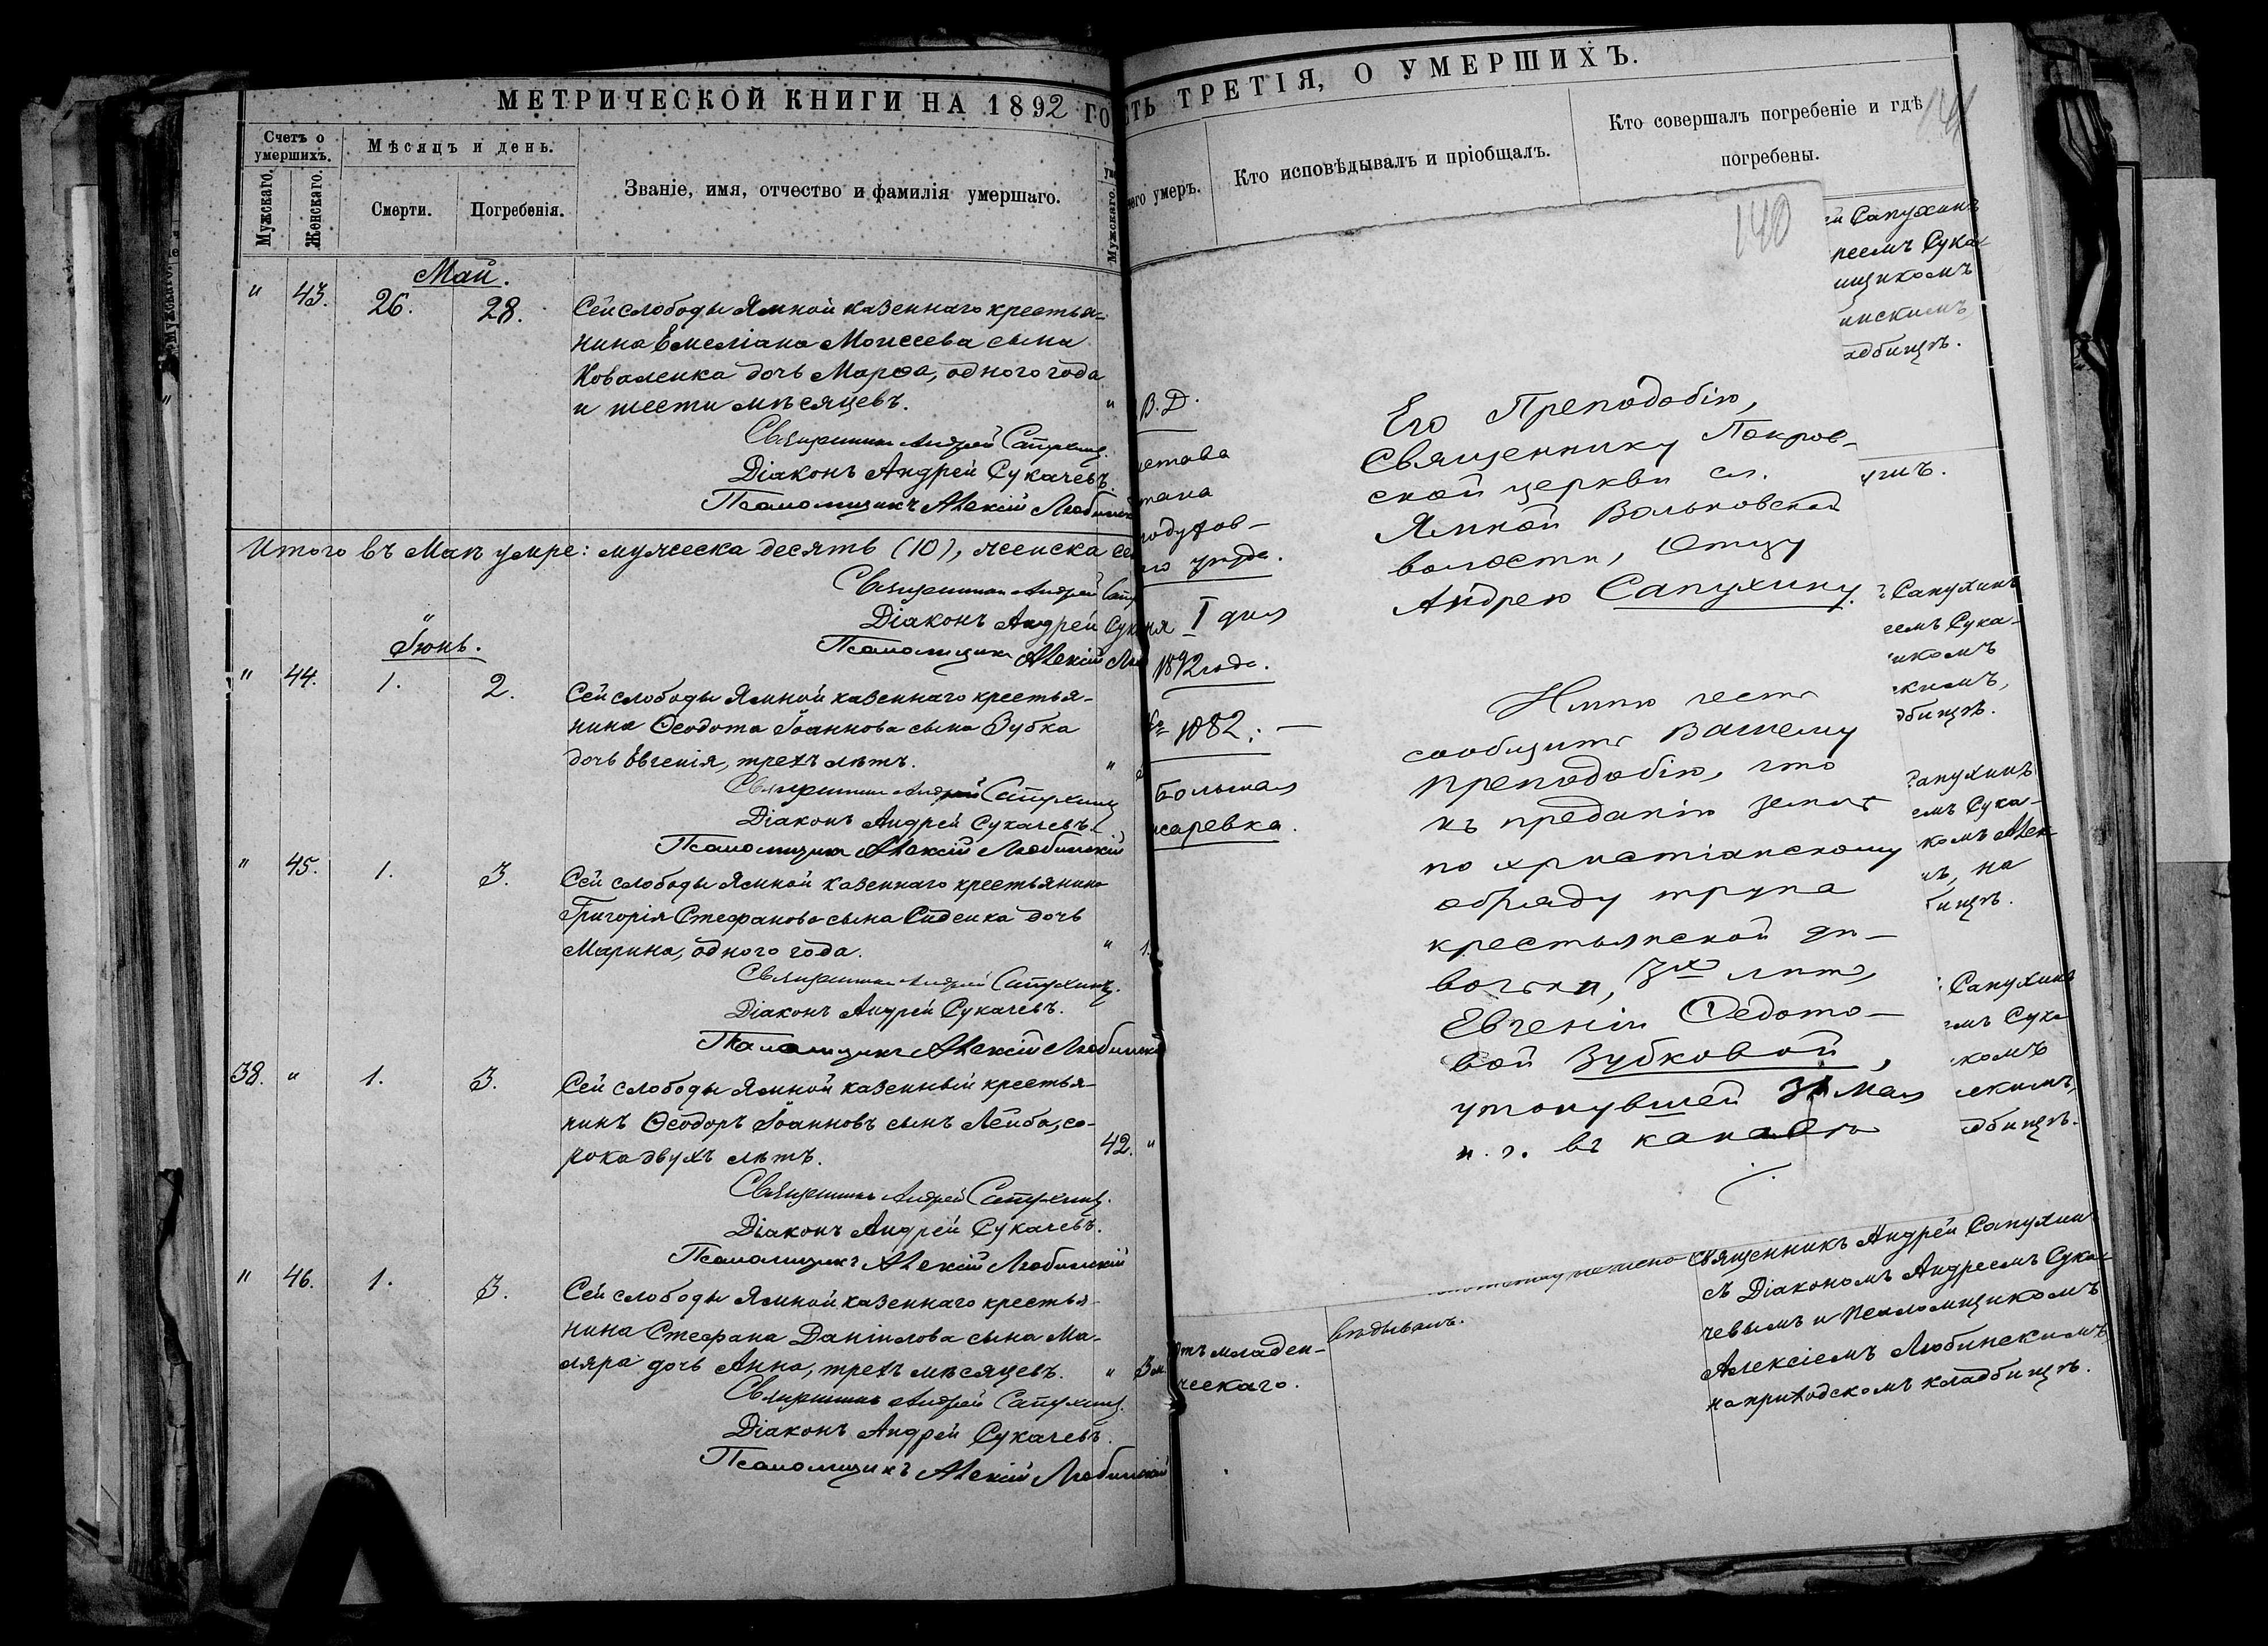 МЕТРИЧЕСКОЙ КНИГИ НА 1892 ГО
Счетъ о умершихъ.
Мужскаго.
Женскаго.
Мѣсяцъ и день.
Смерти.
Погребенія.
Званіе, имя, отчество и фамилія умершаго.
Мужскаго.
Май.
" 43. 26. 28. Сей слободы Ямной казеннаго крестья-
нина Емеліана Моисеева сына
Коваленка дочь Марѳа, одного года
и шести мѣсяцевъ. "
Священникъ Андрей Сапухинъ.
Діаконъ Андрей Сукачевъ.
Псаломщикъ Алексій Любинскій
Итого въ Маѣ умре: мужеска десять (10), женска се
Священникъ Андрей Сапу
Діаконъ Андрей Сука
Псаломщикъ Алексій Лю
Іюнь.
" 44. 1. 2. Сей слободы Ямной казеннаго крестья-
нина Ѳеодота Іоаннова сына Зубка
дочь Евгенія, трехъ лѣтъ. "
Священникъ Андрей Сапухинъ
Діаконъ Андрей Сукачевъ.
Псаломщикъ Алексій Любинскій
" 45. 1. 3. Сей слободы Ямной казеннаго крестьянина
Григорія Стефанова сына Сиденка дочь
Марина, одного года. " 1.
Священникъ Андрей Сапухинъ.
Діаконъ Андрей Сукачевъ.
Псаломщикъ Алексій Любинскій
38. " 1. 3. Сей слободы Ямной казенный крестья-
нинъ Ѳеодоръ Іоанновъ сынъ Лейба, со-
рока двухъ лѣтъ. 42. "
Священникъ Андрей Сапухинъ.
Діаконъ Андрей Сукачевъ.
Псаломщикъ Алексій Любинскій
" 46. 1. 3. Сей слободы Ямной казеннаго крестья-
нина Стефана Даніилова сына Ма-
ляра дочь Анна, трехъ мѣсяцевъ. " 3 м.
Священникъ Андрей Сапухинъ.
Діаконъ Андрей Сукачевъ.
Псаломщикъ Алексій Любинскій
СТЬ ТРЕТІЯ, О УМЕРШИХЪ.
чего умеръ.
Кто исповѣдывалъ и пріобщалъ.
Кто совершалъ погребеніе и гдѣ погребены.
141
140
В. Д.
става
тана
годухов-
го уѣзда.
ня 1 дня
1892 года.
№ 1082. —
Большая
исаревка.
Его Преподобію,
Священнику Покров-
ской церкви сл.
Ямной Вольновской
волости, Отцу
Андрею Сапухину.
Имѣю честь
сообщить Вашему
Преподобію, что
къ преданію землѣ
по христіанскому
обряду трупа
крестьянской дѣ-
вочки, 3хъ лѣтъ,
Евгеніи Ѳедото-
вой Зубковой,
утонувшей 31 мая
н. г. въ канавѣ
ей Сапухинъ
реемъ Сука-
мщикомъ
инскимъ
адбищѣ.
Сапухинъ
еемъ Сука-
икомъ
скимъ,
дбищѣ.
Сапухинъ
емъ Сука-
комъ Алек-
ъ, на
бищѣ.
Сапухинъ
емъ Сука
комъ
скимъ,
адбищѣ.
отъ младен-
ческаго.
вѣдывалъ.
Священникъ Андрей Сапухинъ
съ Діакономъ Андреемъ Сука-
чевымъ и Псаломщикомъ
Алексіемъ Любинскимъ
на приходскомъ кладбищѣ.